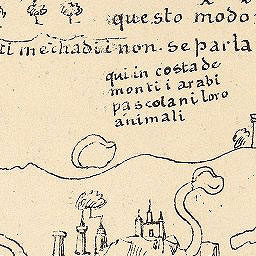 questo modo
non · se parla
qui in costa de
monti i arabi
pascolani loro
animali